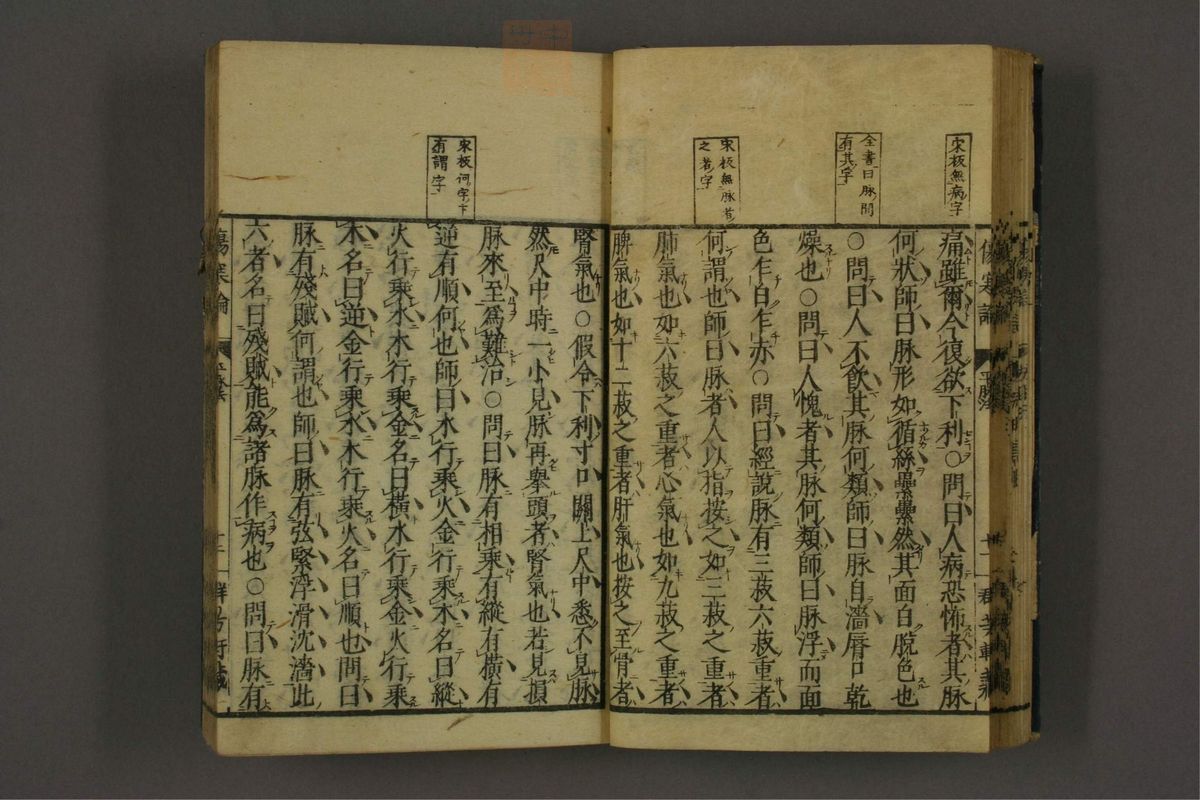 宋板無病字
全書曰脉間
有其字
宋板無脉者
之者字
痛雖爾今復欲下利○問曰人病恐怖者其脉
何狀師曰脉形如循絲纍纍然其面白脫色也
○問曰人不飲其脉何類師曰脉自濇唇口乾
燥也○問曰人愧者其脉何類師曰脉浮而面
色乍白乍赤○問曰經說脉有三菽六菽重者
何謂也師曰脉者人以指按之如三菽之重者
肺氣也如六菽之重者心氣也如九菽之重者
脾氣也如十二菽之重者肝氣也按之至骨者
宋板何字下
有謂字
腎氣也○假令下利寸口關上尺中悉不見脉
然尺中時一小見脉再舉頭者腎氣也若見損
脉來至爲難治○問曰脉有相乘有縱有橫有
逆有順何也師曰水行乘火金行乘木名曰縱
火行乘水木行乘金名曰橫水行乘金火行乘
木名曰逆金行乘水木行乘火名曰順也問曰
脉有殘賊何謂也師曰脉有弦緊浮滑沈濇此
六者名曰殘賊能爲諸脉作病也○問曰脉有
傷寒論 平脉法